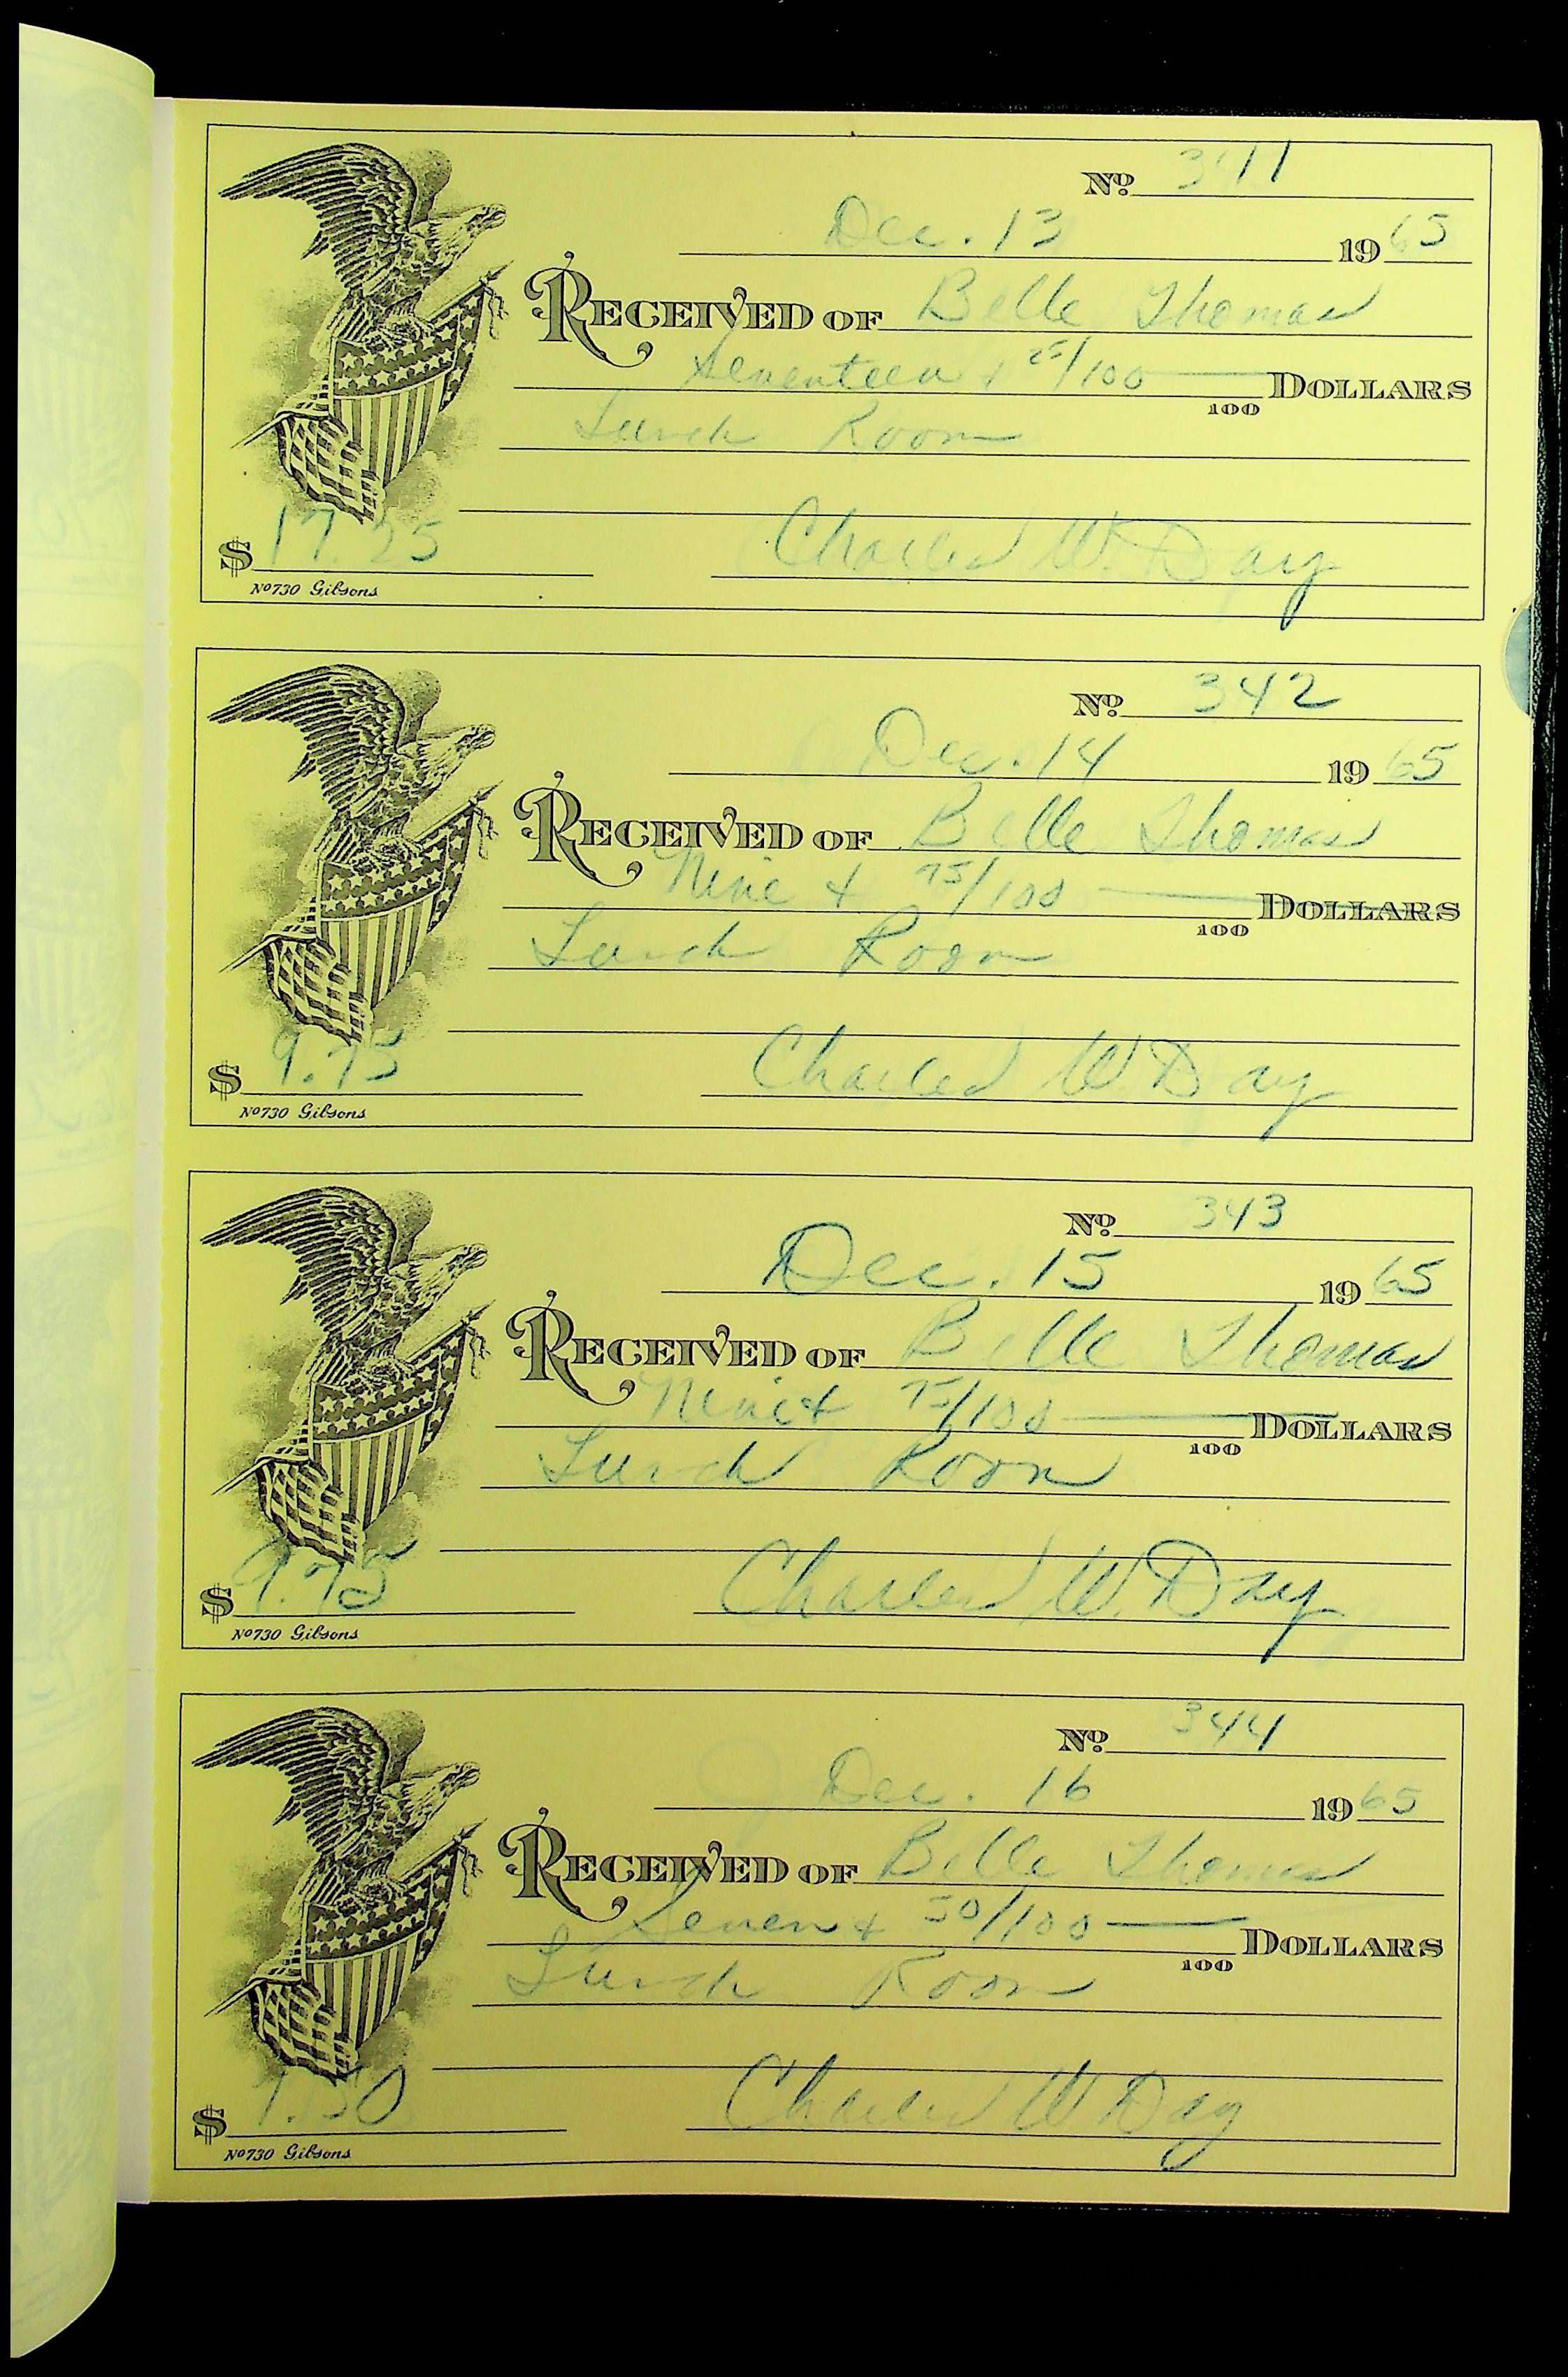 No. 341
Dec. 13 1965
RECEIVED OF Belle Thomas
Seventeen & 25/100 DOLLARS
100
Lunch Room
$ 17.25 Charles W. Day
No 730 Gibsons
No. 342
Dec. 14 1965
RECEIVED OF Belle Thomas
Nine & 75/100 DOLLARS
100
Lunch Room
$ 9.75 Charles W Day
No 730 Gibsons
No. 343
Dec. 15 1965
RECEIVED OF Belle Thomas
Nine & 75/100 DOLLARS
100
Lunch Room
$ 9.75 Charles W. Day
No 730 Gibsons
No. 344
Dec. 16 1965
RECEIVED OF Belle Thomas
Seven & 50/100 DOLLARS
100
Lunch Room
$ 7.50 Charles W Day
No 730 Gibsons